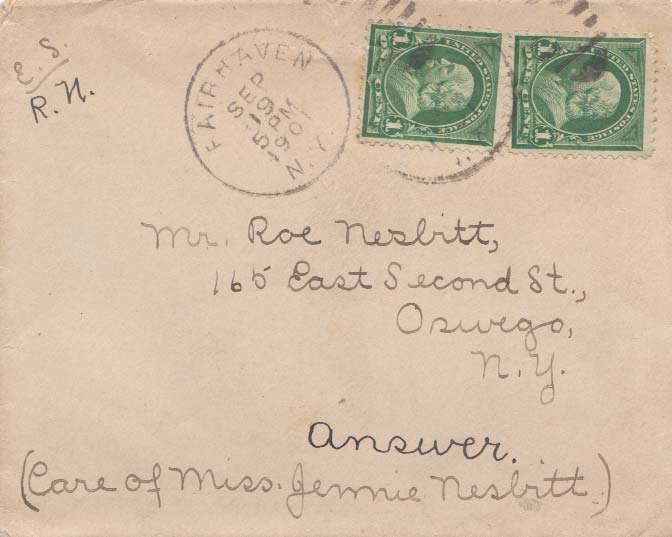 E. S.
R. N.
FAIRHAVEN
SEP
19
5PM
1901
N.Y.
UNITED STATES POSTAGE
1 ONE CENT 1
UNITED STATES POSTAGE
1 ONE CENT 1
Mr. Roe Nesbitt,
165 East Second St.,
Oswego,
N.Y.
Answer.
(Care of Miss. Jennie Nesbitt.)